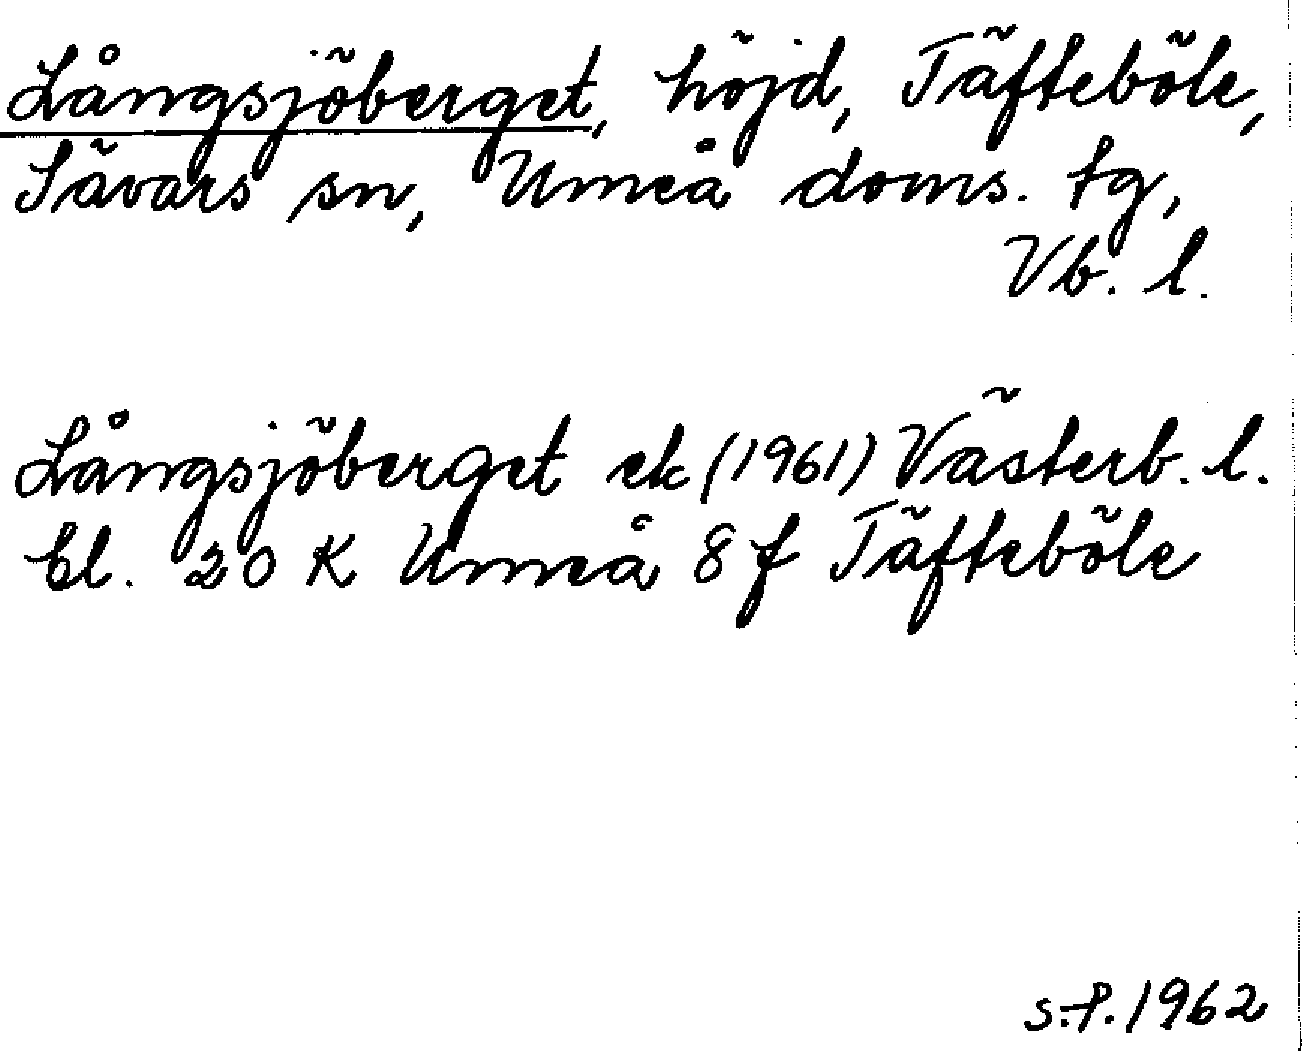 Långsjöberget, höjd, Täfteböle,
Sävars sn, Umeå doms. tg,
Vb. l.
Långsjöberget ek (1961) Västerb. l.
bl. 20 K Umeå 8 f Täfteböle
S.P. 1962